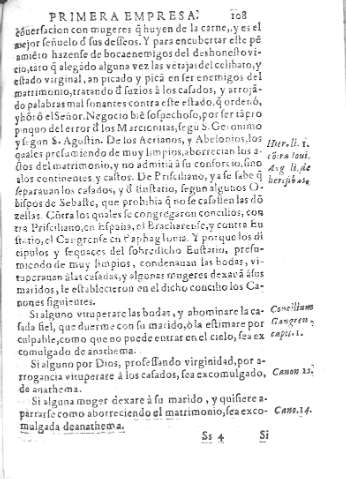 PRIMERA EMPRESA. 108
cōversacion con mugeres q̄ huyen de la carne, y es el
mejor señuelo d̄ sus desseos. Y para encubrtar este pē
amiēto hazense de bocaenemigos del deshonesto vi
cio, tāto q̄ alegādo alguna vez las vētajas del celibato, y
estado virginal, an picado y picā en ser enemigos del
matrimonio, tratando d̄ suzios à los casados, y arrojā-
do palabras mal sonantes contra este estado, q̄ ordenó,
y hōró el Señor. Negocio biē sospechoso, por ser tā pro
pinquo del error d̄ los Marcionitas, segū S. Geronimo
y segun S. Agustin. De los Aerianos, y Abelonios, los
quales presumiendo de muy limpios, aborrecian los a-
ctos del matrimonio, y no admitiā à su consorcio, sino
a los continentes y castos. De Prisciliano, ya se sabe q̄
separauan los casados, y d̄ Eustatio, segun algunos O-
bispos de Sebaste, que prohibia q̄ no se casassen las dō
zellas. Cōtra los quales se congregaron concilios, con
tra Prisciliano, en España, el Bracharense, y contra Eu
statio, el Gangrense en Paphlagonia. Y porque los di
cipulos y sequaces del sobredicho Eustatio, presu-
miendo de muy limpios, condenauan las bodas, vi-
tuperauan à las casadas, y algunas mugeres dexavā à sus
maridos, se establecieron en el dicho concilio los Ca-
nones siguientes.
Si alguno vituperare las bodas, y abominare la ca-
sada fiel, que duerme con su marido, ò la estimare por
culpable, como que no puede entrar en el cielo, sea ex
comulgado de anathema.
Si alguno por Dios, professando virginidad, por a-
rrogancia vituperare à los casados, sea excomulgado,
de anathema.
Si alguna muger dexare à su marido, y quisiere a-
partarse como aborreciendo el matrimonio, sea exco-
mulgada de anathema.
Ss 4 Si
Hier. li. 1.
cōtra Ioui.
Aug li. de
heresibus.
Concilium
Gangren.
capit. 1.
Canon 11.
Cano. 14.